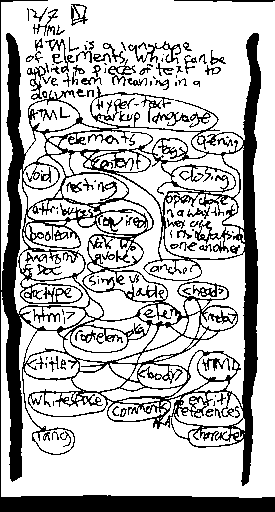 12/7
HTML
HTML is a language
of elements, which can be
applied to pieces of text to
give them meaning in a
document
HTML
Hyper-text
markup language
elements
tags
opening
content
void
nesting
closing
attributes
required
open close
in a way that
boolean
one another
quotes
anatomy
of Doc
anchor
single vs
double
doctype
<head>
<html>
elem
<meta>
root elem
<title>
<body>
HTML
whitespace
comments
entity
references
character